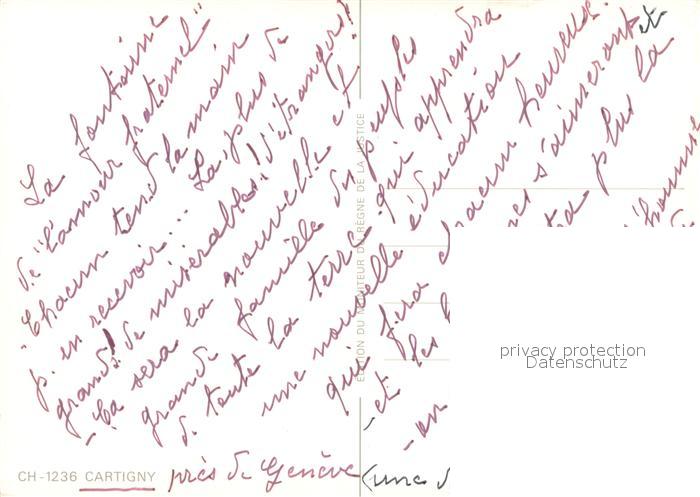 La fontaine
de "l'amour fraternel"
"Chacun tend la main
p. en recevoir... La plus de
grands! de misérables! d'étrangers!
- Ça sera la nouvelle et
grande famille du peuple
de toute la terre qui apprendra
une nouvelle éducation
qui fera chacun heureux.
- et les
s'aimeront et
- on
plus la
l'homme
EDITION DU MONITEUR DU RÈGNE DE LA JUSTICE
privacy protection
Datenschutz
CH-1236 CARTIGNY près de Genève (une